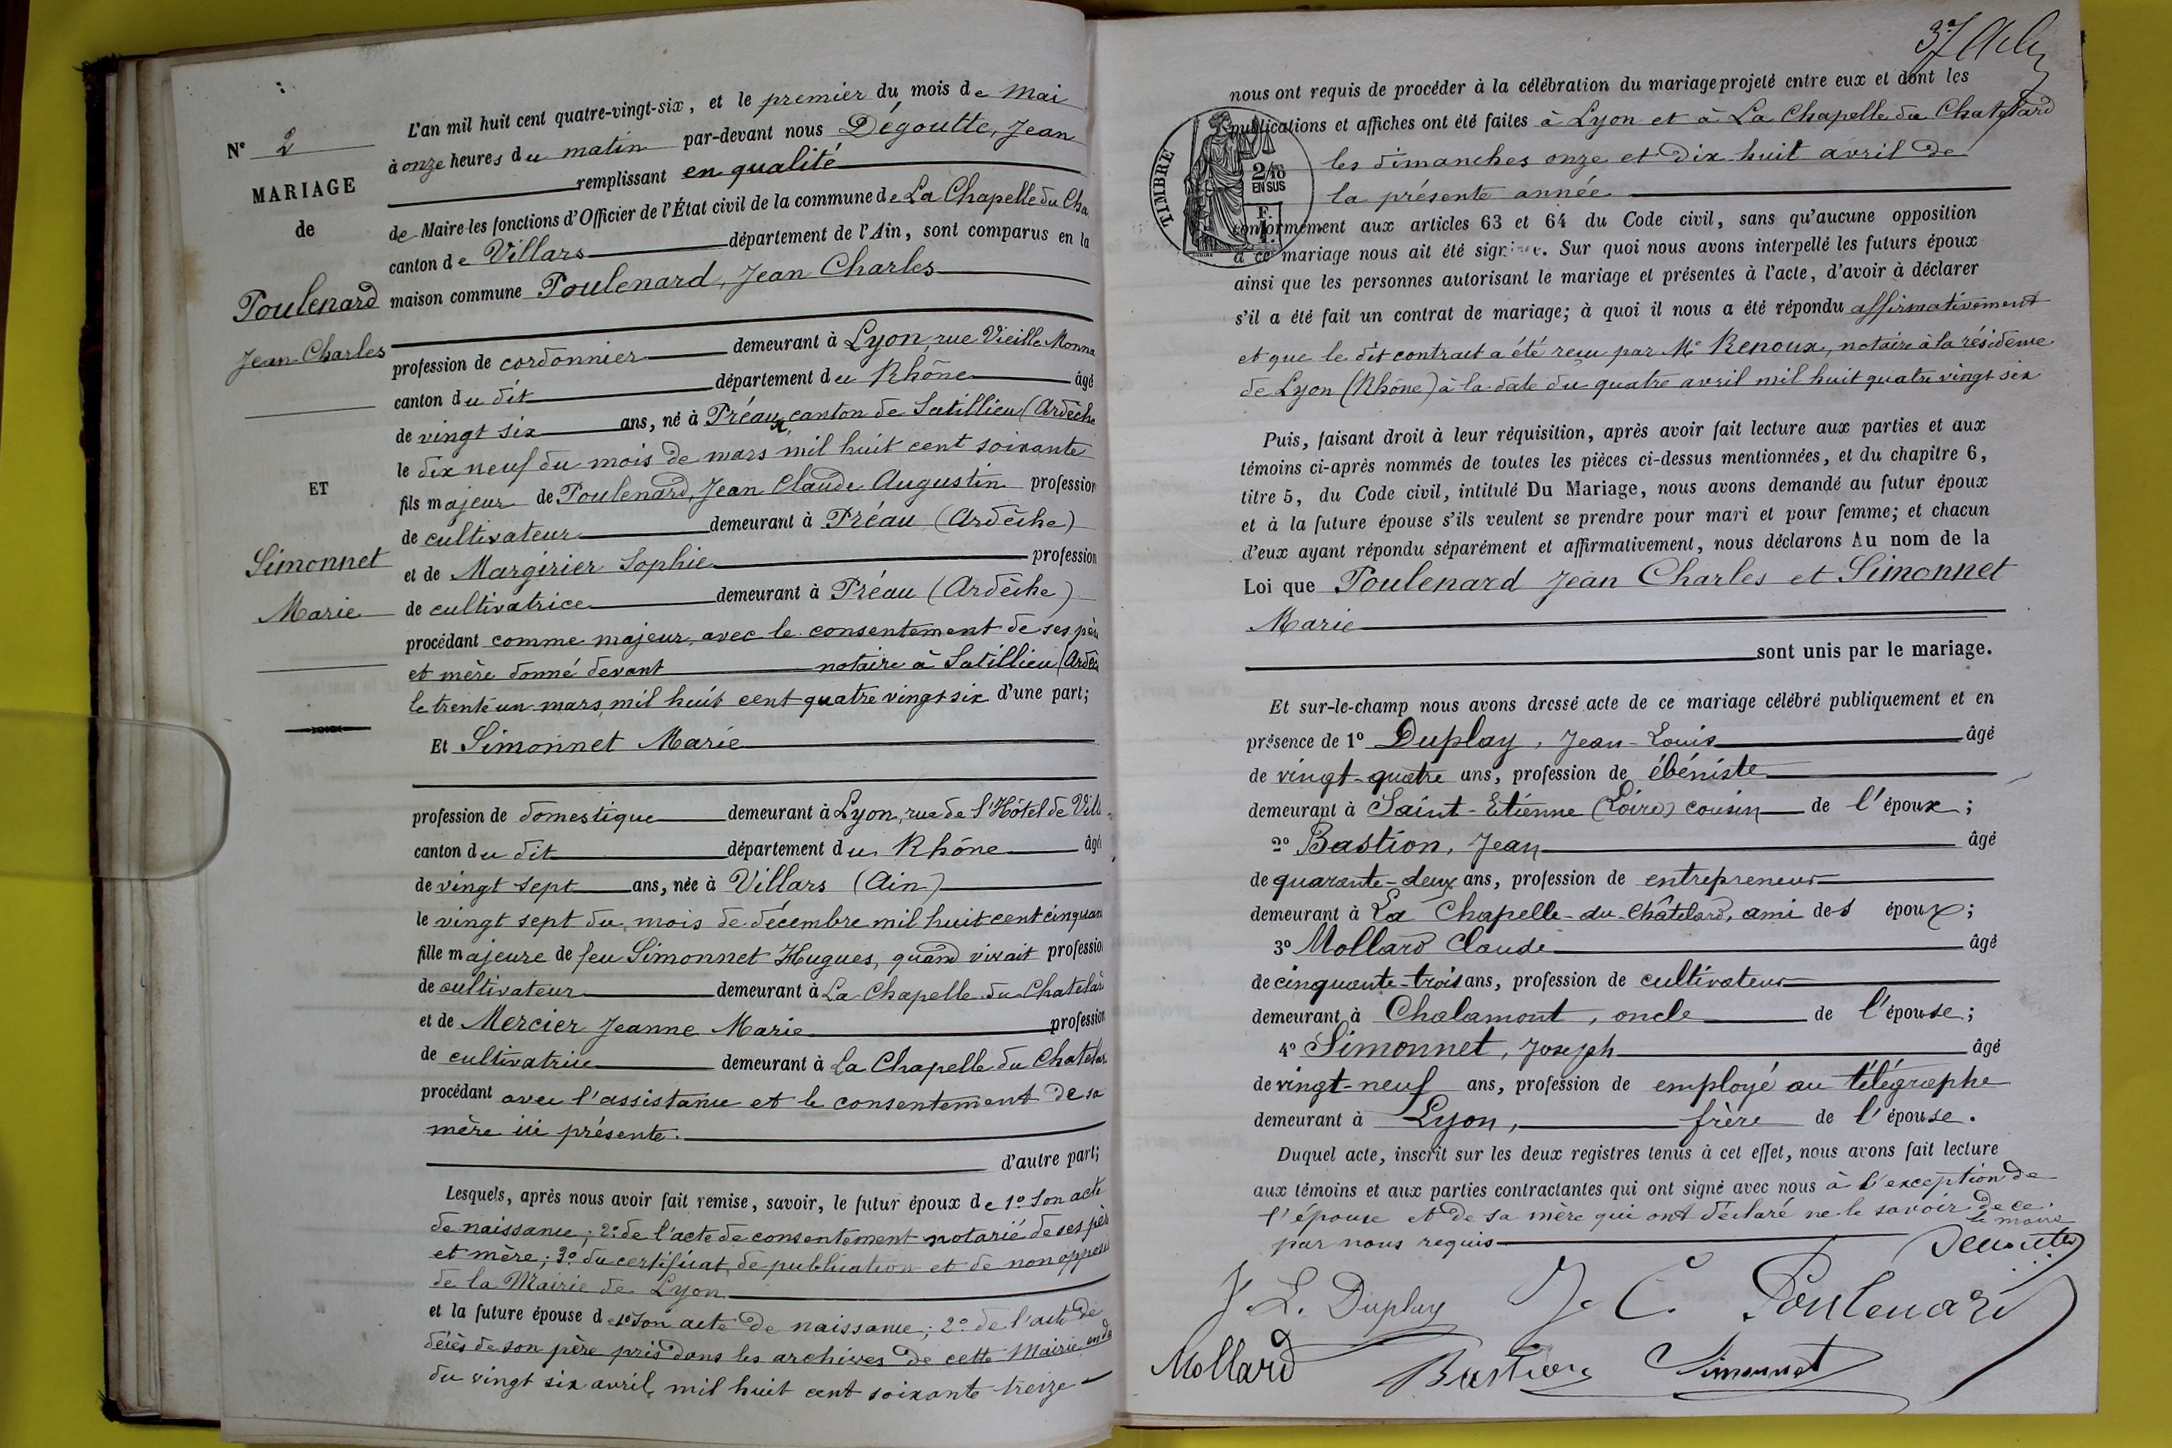 N° 2
MARIAGE
de
Poulenard
Jean Charles
ET
Simonnet
Marie
L'an mil huit cent quatre-vingt-six, et le premier du mois de Mai
à onze heures du matin par-devant nous Dégoutte, Jean
remplissant en qualité
de Maire les fonctions d'Officier de l'État civil de la commune de La Chapelle du Cha
canton de Villars département de l'Ain, sont comparus en la
maison commune Poulenard, Jean Charles
profession de cordonnier demeurant à Lyon rue Vieille Monna
canton du dit département du Rhône âgé
de vingt six ans, né à Préaux canton de Satillieu (Ardèche
le dix neuf du mois de mars mil huit cent soixante
fils majeur de Poulenard, Jean Claude Augustin profession
de cultivateur demeurant à Préau (Ardèche)
et de Margirier Sophie profession
de cultivatrice demeurant à Préau (Ardèche)
procédant comme majeur, avec le consentement de ses père
et mère donné devant notaire à Satillieu (Ardè
le trente un mars, mil huit cent quatre vingt six d'une part;
Et Simonnet Marie
profession de domestique demeurant à Lyon, rue de l'Hôtel de Vill
canton du dit département du Rhône âgé
de vingt sept ans, née à Villars (Ain)
le vingt sept du mois de décembre mil huit cent cinquan
fille majeure de feu Simonnet Hugues, quand vivait profession
de cultivateur demeurant à La Chapelle du Chatelar
et de Mercier Jeanne Marie profession
de cultivatrice demeurant à La Chapelle du Chatelar
procédant avec l'assistance et le consentement de sa
mère ici présente.
d'autre part;
Lesquels, après nous avoir fait remise, savoir, le futur époux de 1° Son acte
de naissance; 2° de l'acte de consentement notarié de ses pèr
et mère; 3° du certificat de publication et de non opposi
de la Mairie de Lyon
et la future épouse de 1° Son acte de naissance; 2° de l'acte de
décès de son père pris dans les archives de cette Mairie
du vingt six avril, mil huit cent soixante treize
37
nous ont requis de procéder à la célébration du mariage projeté entre eux et dont les
publications et affiches ont été faites à Lyon et à La Chapelle du Chatelard
les dimanches onze et dix-huit avril de
la présente année
TIMBRE
2/10
EN SUS
conformément aux articles 63 et 64 du Code civil, sans qu'aucune opposition
à ce mariage nous ait été signifiée. Sur quoi nous avons interpellé les futurs époux
ainsi que les personnes autorisant le mariage et présentes à l'acte, d'avoir à déclarer
s'il a été fait un contrat de mariage; à quoi il nous a été répondu affirmativement
et que le dit contract a été reçu par Me Renoux, notaire à la résidence
de Lyon (Rhône) à la date du quatre avril mil huit quatre vingt six
Puis, faisant droit à leur réquisition, après avoir fait lecture aux parties et aux
témoins ci-après nommés de toutes les pièces ci-dessus mentionnées, et du chapitre 6,
titre 5, du Code civil, intitulé Du Mariage, nous avons demandé au futur époux
et à la future épouse s'ils veulent se prendre pour mari et pour femme; et chacun
d'eux ayant répondu séparément et affirmativement, nous déclarons Au nom de la
Loi que Poulenard Jean Charles et Simonnet
Marie
sont unis par le mariage.
Et sur-le-champ nous avons dressé acte de ce mariage célébré publiquement et en
présence de 1° Duplay, Jean-Louis âgé
de vingt-quatre ans, profession de ébéniste
demeurant à Saint-Etienne (Loire) cousin de l'époux;
2° Bastion, Jean âgé
de quarante-deux ans, profession de entrepreneur
demeurant à La Chapelle-du-Châtelard, ami des époux;
3° Mollard Claude âgé
de cinquante-trois ans, profession de cultivateur
demeurant à Chalamont, oncle de l'épouse;
4° Simonnet, Joseph âgé
de vingt-neuf ans, profession de employé au télégraphe
demeurant à Lyon, frère de l'épouse.
Duquel acte, inscrit sur les deux registres tenus à cet effet, nous avons fait lecture
aux témoins et aux parties contractantes qui ont signé avec nous à l'exception de
l'épouse et de sa mère qui ont déclaré ne le savoir de ce
par nous requis
Le maire
J. L. Duplay J. C. Poulenard
Mollard Bastion Simonnet